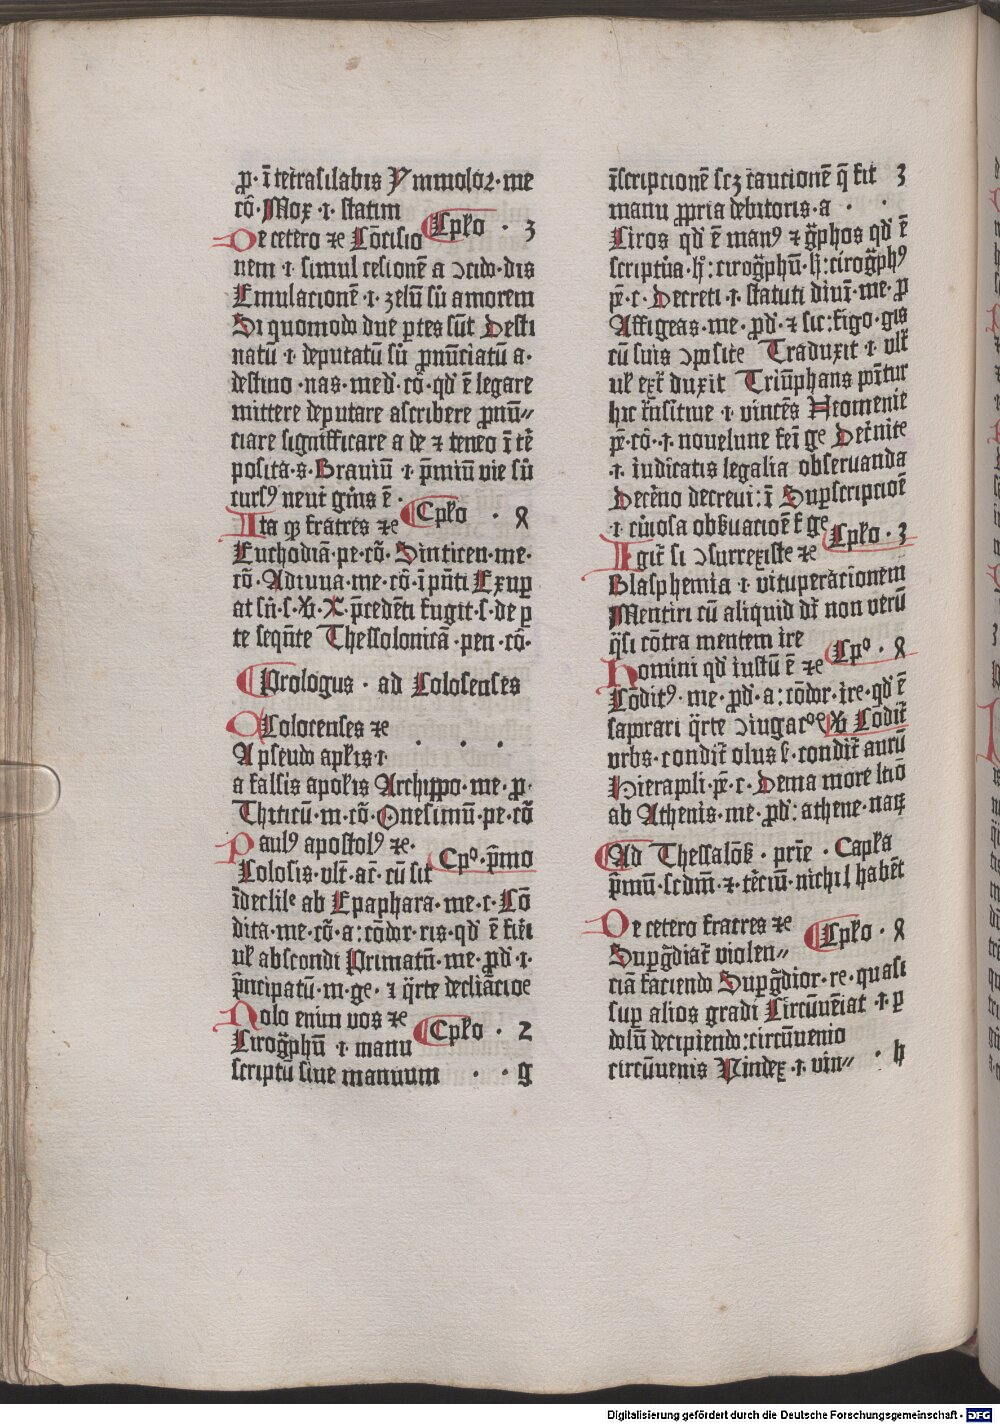 ꝓ· ī tetrasilabis Ymmolor· me
cō· Mox ·i· statim
Cpło · 3
De cetero ⁊c Cōcisio
nem ·i· simul cesionē a ↄcido· dis
Emulacionē ·i· zelū sū amorem
Si quomodo due ꝑtes sūt Desti
natū ·i· deputatū sū ꝓnūciatū a·
destino ·nas· med· cō· qd ē legare
mittere deputare ascribere ꝓnū〃
ciare significare a de ⁊ teneo ī tē
posita· s· Braviū ·i· p̄miū vie sū
curs⁹ nevt gn̄is ē ·
Cpło · 8
Ita qꝫ fratres ⁊c
Euchodiā· pe· cō· Sinticen· me·
cō· Adiuva· me· cō· ī pn̄ti Exuꝑ
at sn̄· s· V· X· p̄cedēti fugit· s· de ꝑ
te seqn̄te Thessolonicā· pen· cō·
Prologus · ad Colosenses
Colocenses ⁊c
A pseudo aplis ·i·
a falsis apolis Archippo· me· ꝓ·
Thiticū· m· cō· Onesimū· pe· cō
Paul⁹ apostol⁹ ⁊c·
Cpº· p̄mo
Colosis· vlt̄· ac̄· cū sit
īdeclile ab Epaphara· me· c· Cō
dita· me· cō· a: cōdor· ris· qd ē fieri
vł abscondi Primatū· me· ꝓd· ·i·
p̄ncipatū· m· ge· ⁊ q̄rte decliāciōe
Nolo enim vos ⁊c
Cpło · 2
Cirogp̄hū ·i· manu
scriptū sive manuum · · g
īscripcionē scꝫ caucionē q̄ fit 3
manu ꝓpria debitoris· a · ·
Ciros qd ē man⁹ ⁊ gp̄hos qd ē
scriptūa· h̄: cirogp̄hū· h̄: cirogp̄h⁹
pē· c· Decreti ·i· statuti divī· me· ꝓ
Affigeas· me· ꝓd· ⁊ sic: figo· gis
cū suis ↄposite Traduxit ·i· vlt̄
vł ext̄ duxit Triūphans pn̄tur
hic trāsitive ·i· vincēs Neomenie
pē· cō· ·i· novelune fēi ge Decernite
·i· iudicatis legalia observanda
Decērno decrevi: ī Suꝑscripcioē
·i· cūiosa obßuacioē f ge
Cpło · 3
Igit̄ si ↄsurrexiste ⁊c
Blasphemia ·i· vituperacionem
Mentiri cū aliquid dr̄ non verū
q̄si cōtra mentem ire
Cpº · 8
Domini qd iustū ē ⁊c
Cōdit⁹· me· ꝓd· a: cōdor· ire· qd ē
saporari q̄rte ↄiugacōe V Condit̄
vrbs· condit̄ olus s· condit̄ aurū
Hierapoli· pē· c· Dema more ltiō
ab Athenis· me· ꝓd: athene· naꝝ
Ad Thessalōs̄ · prie · Capła
p̄mū· scdm̄· ⁊· tēciū· nichil habēt
De cetero fratres ⁊c
Cpło · 8
Suꝑgdiat̄ violen〃
ciā faciendo Suꝑgdior· re· quasi
suꝑ alios gradi Circūvēiat ·i· ꝑ
dolū decipiendo: circūvenio
circūvenis Vindex ·i· vin〃 · h
Digitalisierung gefördert durch die Deutsche Forschungsgemeinschaft - DFG